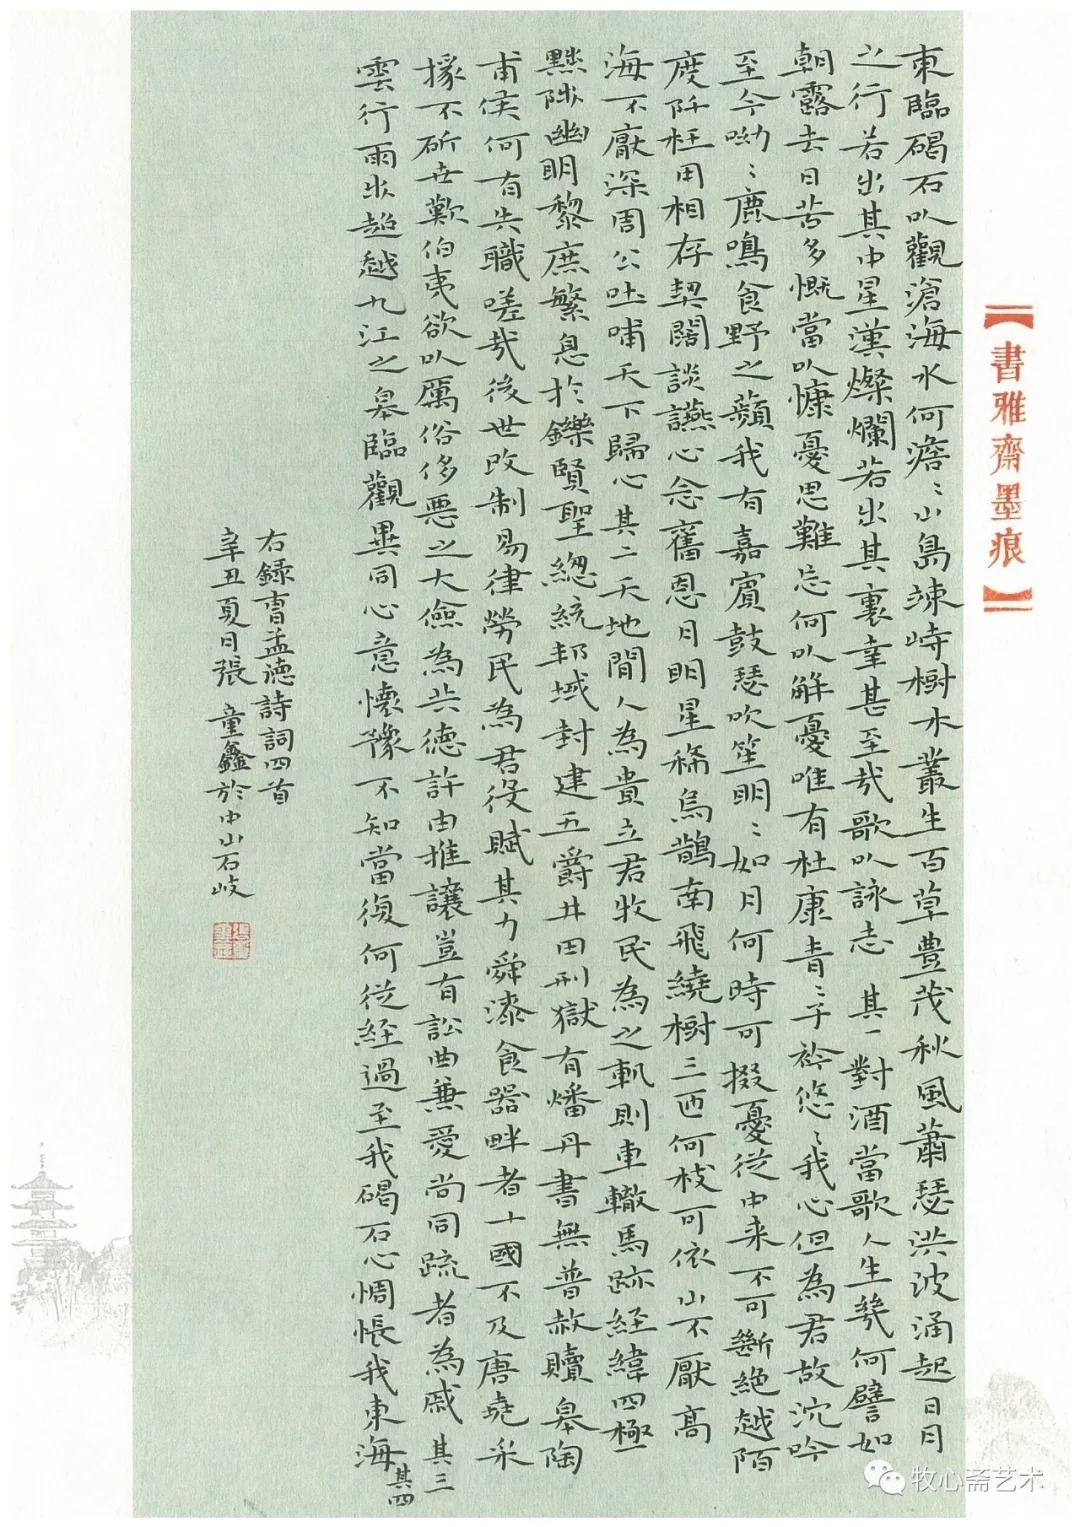 【書雅齋墨痕】
東臨碣石以觀滄海水何澹〻山島竦峙樹木叢生百草豊茂秋風蕭瑟洪波涌起日月
之行若出其中星漢燦爛若出其裏幸甚至哉歌以詠志 其一 對酒當歌人生幾何譬如
朝露去日苦多慨當以慷憂思難忘何以解憂唯有杜康青〻子衿悠〻我心但為君故沉吟
至今呦〻鹿鳴食野之蘋我有嘉賓鼓瑟吹笙明〻如月何時可掇憂從中来不可斷絕越陌
度阡枉用相存契闊談讌心念舊恩月明星稀烏鵲南飛繞樹三匝何枝可依山不厭高
海不厭深周公吐哺天下歸心其二天地間人為貴立君牧民為之軌則車轍馬跡經緯四極
黜陟幽明黎庶繁息於鑠賢聖總統邦域封建五爵井田刑獄有燔丹書無普赦贖皋陶
甫侯何有失職嗟哉後世改制易律勞民為君役賦其力舜漆食器畔者十國不及唐堯采
椽不斫世歎伯夷欲以厲俗侈惡之大儉為共德許由推讓豈有訟曲兼愛尚同疏者為戚 其三
雲行雨步超越九江之皋臨觀異同心意懷豫不知當復何從經過至我碣石心惆悵我東海 其四
右録曹孟德詩詞四首
辛丑夏日張童鑫於中山石岐
牧心斋艺术